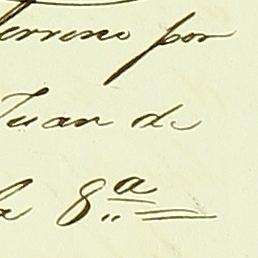 terreno por
Juan de
la 8.ª